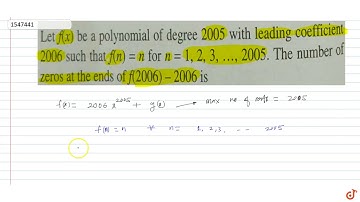 1547441
Let f(x) be a polynomial of degree 2005 with leading coefficient
2006 such that f(n) = n for n = 1, 2, 3, ..., 2005. The number of
zeros at the ends of f(2006) – 2006 is
f(x) = 2006 x^2005 + g(x) → max no of roots = 2005
f(n) = n n = 1, 2, 3, -- - 2005